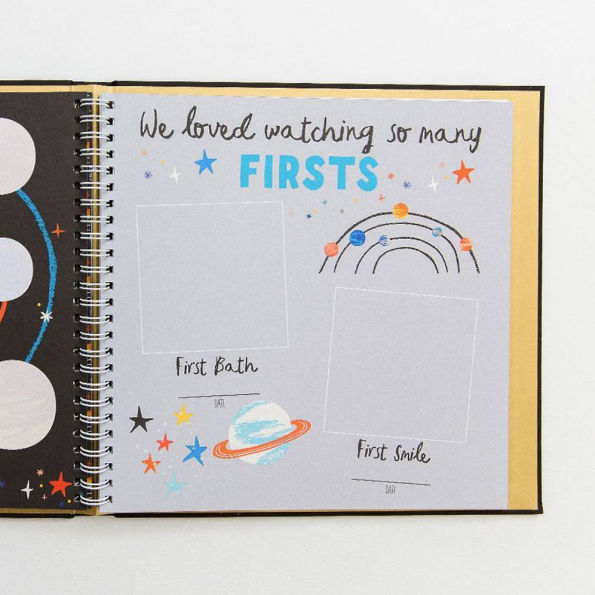 We loved watching so many
FIRSTS
First Bath
DATE
First Smile
DATE